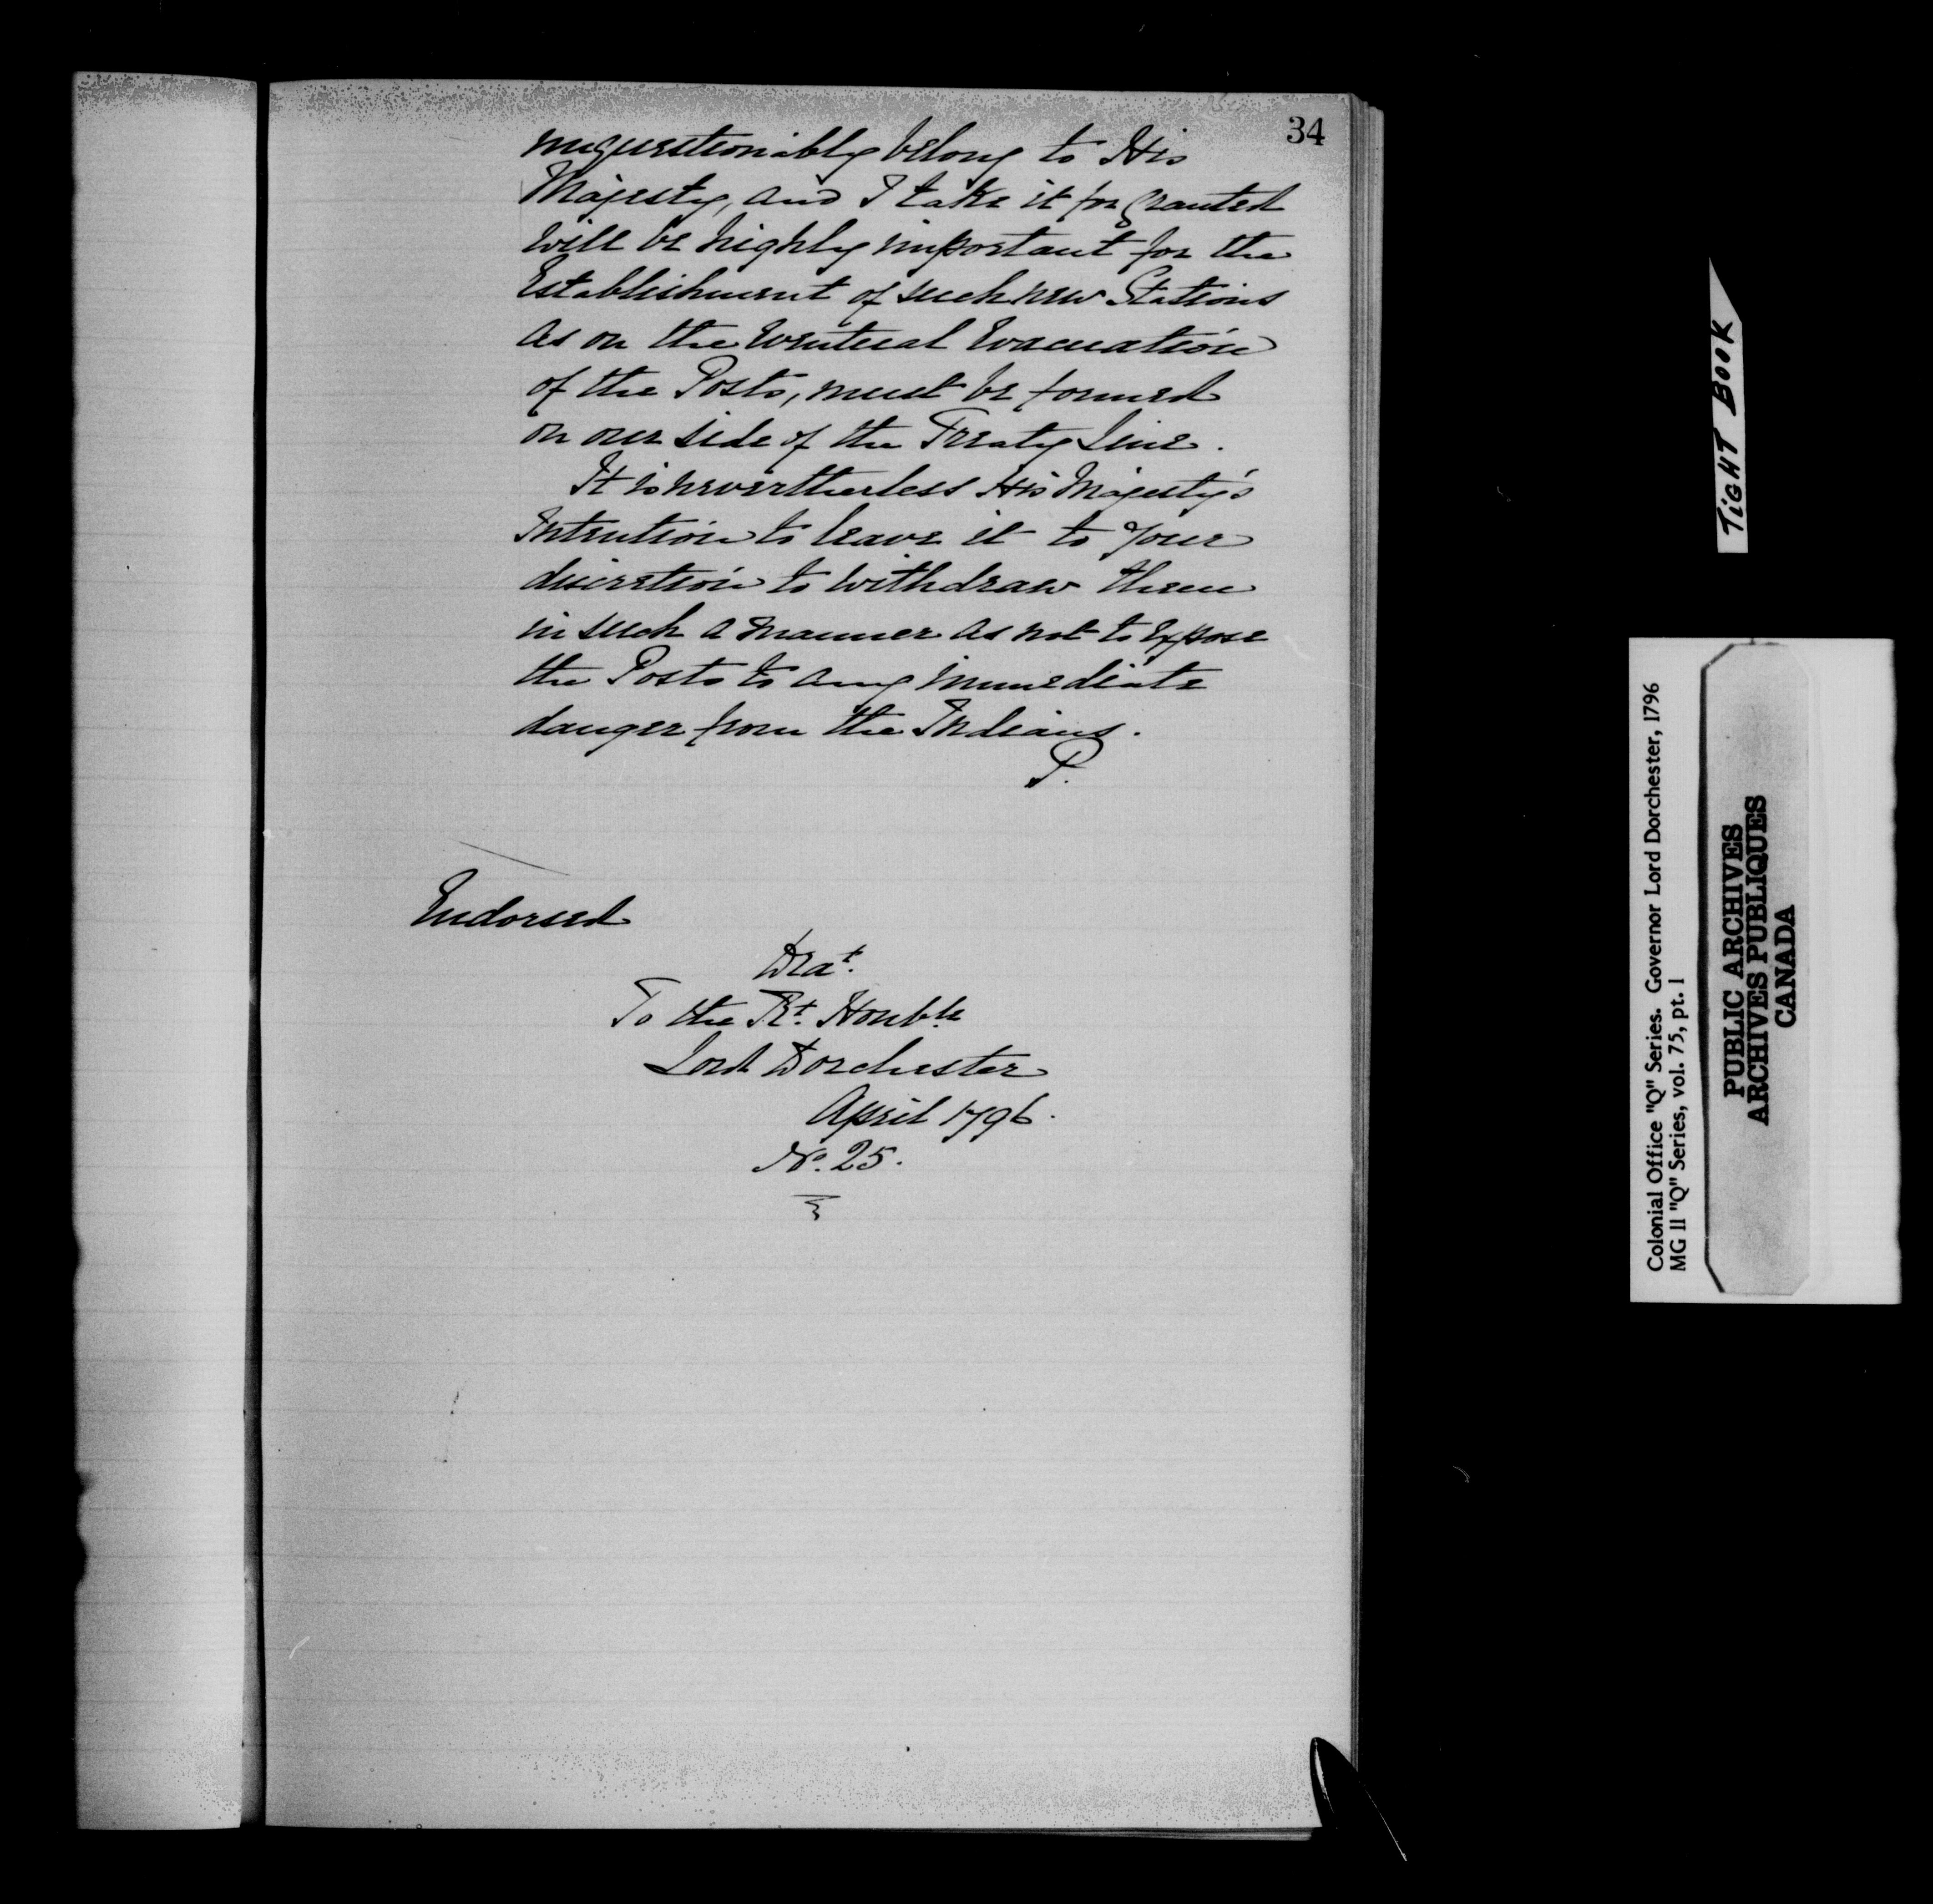 34
unquestionably belong to His
Majesty, and I take it for granted
will be highly important for the
Establishment of such new Stations
as on the eventual Evacuation
of the Posts, must be formed
on our side of the Treaty Line.
It is nevertheless His Majesty's
Intention to leave it to your
discretion to withdraw them
in such a manner as not to expose
the Posts to any immediate
danger from the Indians.
P.
Endorsed
Drat.
To the Rt. Honble
Lord Dorchester
April 1796.
No. 25.
TIGHT BOOK
Colonial Office "Q" Series. Governor Lord Dorchester, 1796
MG 11 "Q" Series, vol. 75, pt. 1
PUBLIC ARCHIVES
ARCHIVES PUBLIQUES
CANADA